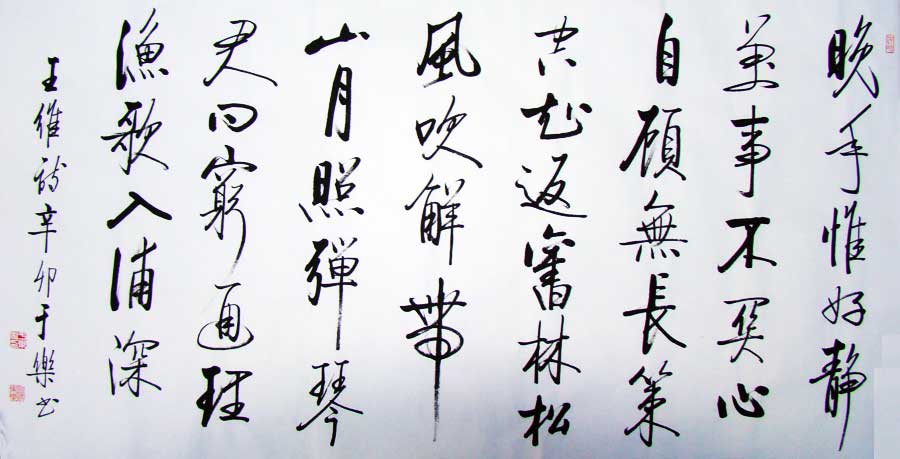 晚年惟好静
萬事不關心
自顧無長策
空知返舊林松
風吹解帶
山月照彈琴
君问窮通理
漁歌入浦深
王維詩辛卯于樂书